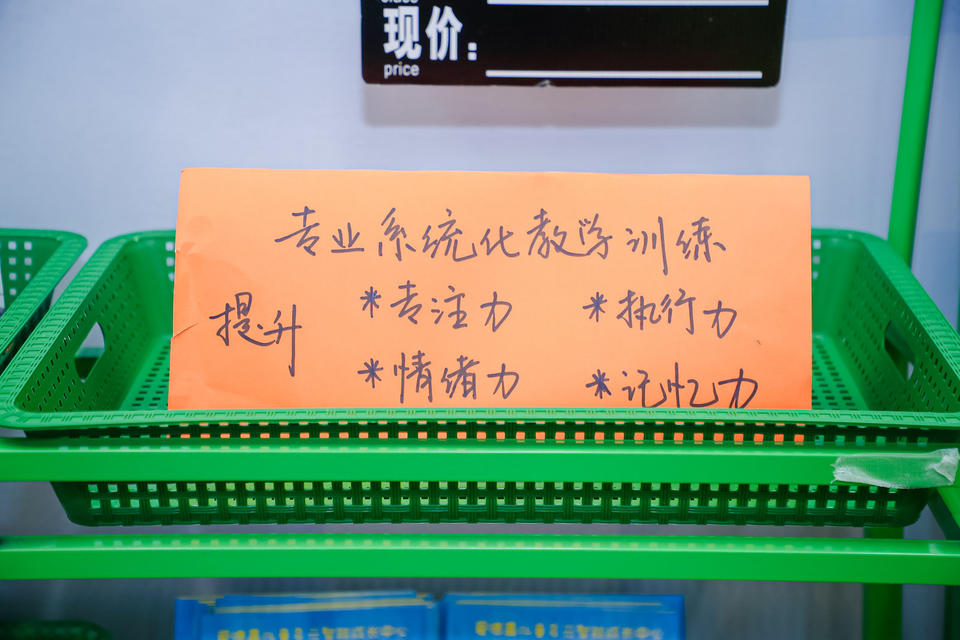 现价：
price
专业系统化教学训练
提升
*专注力 *执行力
*情绪力 *记忆力